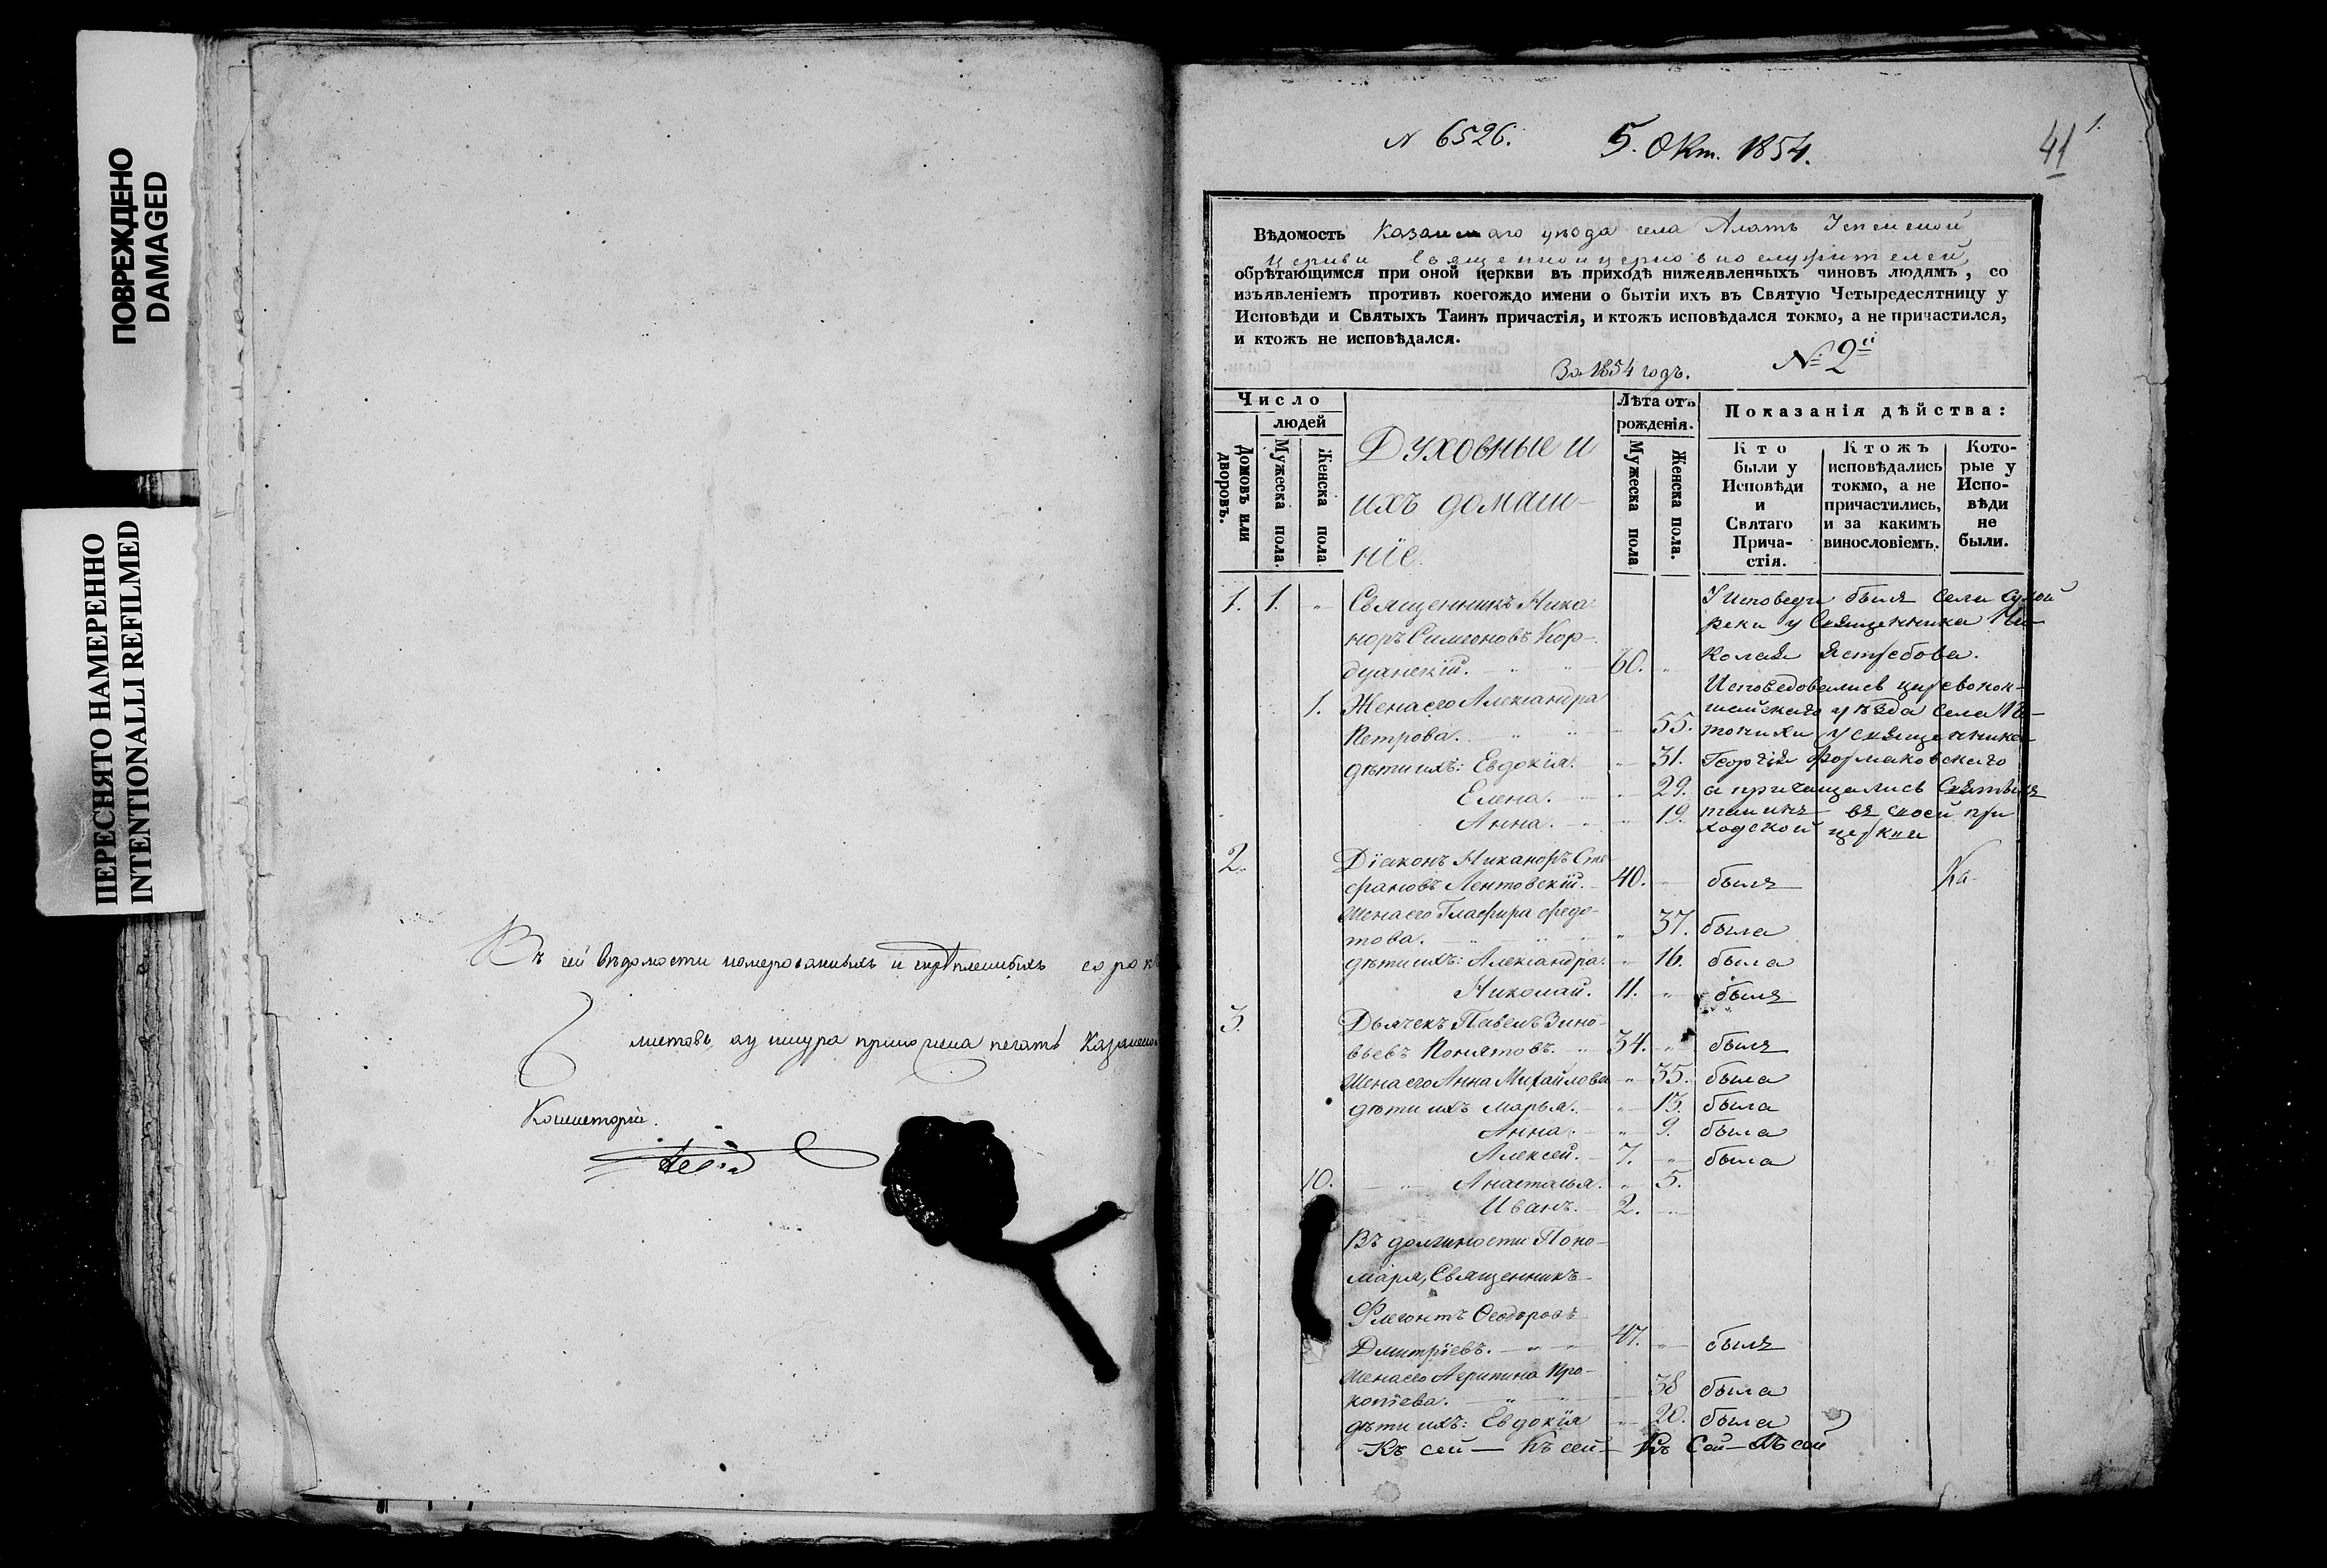 ПОВРЕЖДЕНО
DAMAGED
ПЕРЕСНЯТО НАМЕРЕННО
INTENTIONALLI REFILMED
Въ сей вѣдомости номерованныхъ и скрѣпленныхъ сорокъ
листовъ, ку шнура приложена печать Казанской
Консисторіи.
N 6526. 5. Окт. 1854.
41
1.
Вѣдомость Казанскаго уѣзда села Алатъ Успенской
Церкви Священноицерковнослужителей,
обрѣтающимся при оной церкви въ приходѣ нижеявленныхъ чиновъ людямъ, со
изъявленіемъ противъ коегождо имени о бытіи ихъ въ Святую Четыредесятницу у
Исповѣди и Святыхъ Таинъ причастія, и ктожъ исповѣдался токмо, а не причастился,
и ктожъ не исповѣдался.
За 1854 годъ. № 2й
Число
людей
Домовъ или дворовъ.
Мужеска пола.
Женска пола
Духовные и
ихъ домаш-
ніе.
Лѣта отъ
рожденія.
Мужеска пола
Женска пола.
Показанія дѣйства:
Кто
были у
Исповѣди
и
Святаго
Прича-
стія.
Ктожъ
исповѣдались
токмо, а не
причастились,
и за какимъ
винословіемъ.
Кото-
рые у
Испо-
вѣди
не
были.
1. 1. „ Священникъ Ника- У Исповеди былъ села Сухой
норъ Симеоновъ Кор- реки у Священника Ни-
дуанскій. 60. „ колая Ястребова.
Исповедовались царевокок-
1. Жена его Александра шайскаго уѣзда села
Петрова. „ 55. у священника
дѣти ихъ: Евдокія. „ 31. Георгія Формаковскаго
Елена. „ 29. а причащались Святыхъ
Анна. „ 19. таинъ въ своей при
ходской церкви
2. Діаконъ Никаноръ Сте-
фановъ Лентовскій. 40. былъ Ка-
Жена его Глафира Федо-
това. „ 37. была
дѣти ихъ: Александра. „ 16. была
Николай. 11. „ былъ
3. Дьячекъ Павелъ Зино-
вьевъ Понятовъ. 34. „ былъ
Жена его Анна Михайлова „ 35. была
дѣти ихъ Марья. „ 13. была
Анна. „ 9. была
Алексей. 7. была
10. „ Анастасья. „ 5.
Иванъ. 2. „
Въ должности Поно-
маря, Священникъ
Флегонтъ Феодоровъ
Дмитріевъ. 47. „ былъ
Жена его Агрипина Про-
копіева. „ 38 была
дѣти ихъ: Евдокія 20. была
Къ сей — Къ сей — Къ Сей — Къ сей